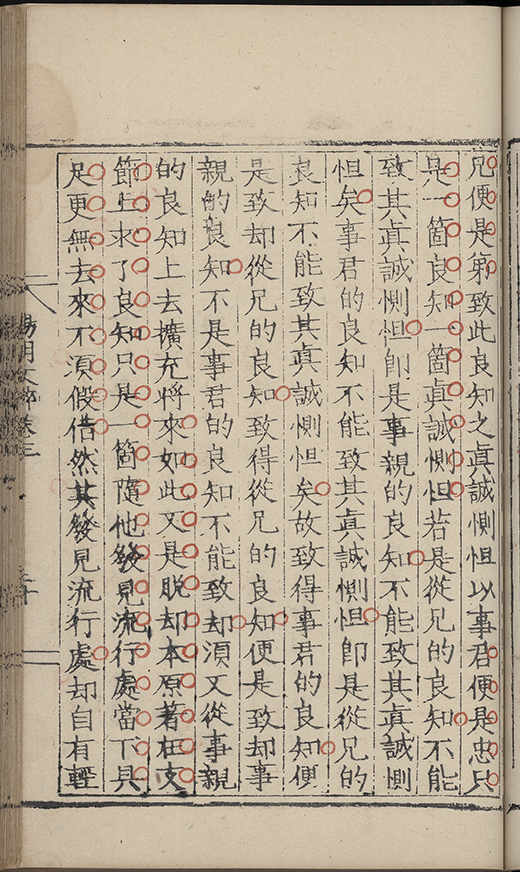 兄便是弟致此良知之眞誠惻怛以事君便是忠只
是一箇良知一箇眞誠惻怛若是從兄的良知不能
致其眞誠惻怛即是事親的良知不能致其眞誠惻
怛矣事君的良知不能致其眞誠惻怛即是從兄的
良知不能致其眞誠惻怛矣故致得事君的良知便
是致却從兄的良知致得從兄的良知便是致却事
親的良知不是事君的良知不能致却須又從事親
的良知上去擴充將來如此又是脫却本原著在支
節上求了良知只是一箇隨他發見流行處當下具
足更無去來不須假借然其發見流行處却自有輕
陽明文卷三